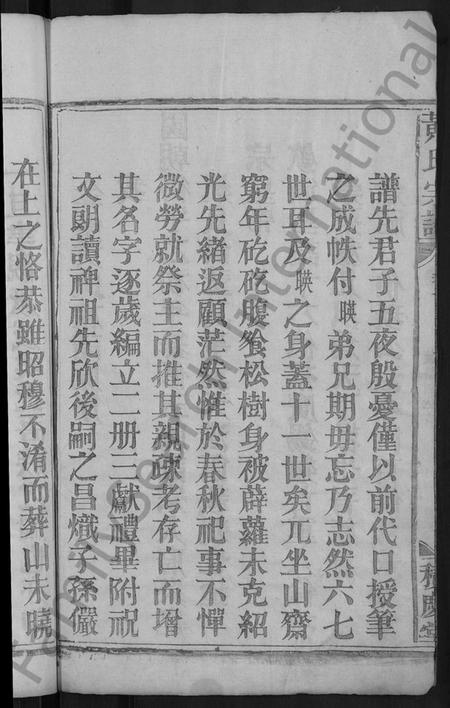 黃氏宗譜
積慶堂
譜先君子五夜殷憂僅以前代口授筆
之成帙付暎弟兄期毋忘乃志然六七
世耳及暎之身蓋十一世矣兀坐山齋
窮年矻矻腹飧松樹身被薜蘿未克紹
光先緒返顧茫然惟於春秋祀事不憚
微勞就祭主而推其親疎考存亡而增
其名字逐歲編立二册三獻禮畢附祝
文朗讀裨祖先欣後嗣之昌熾子孫儼
在上之恪恭雖昭穆不淆而葬山未曉
FamilySearch International